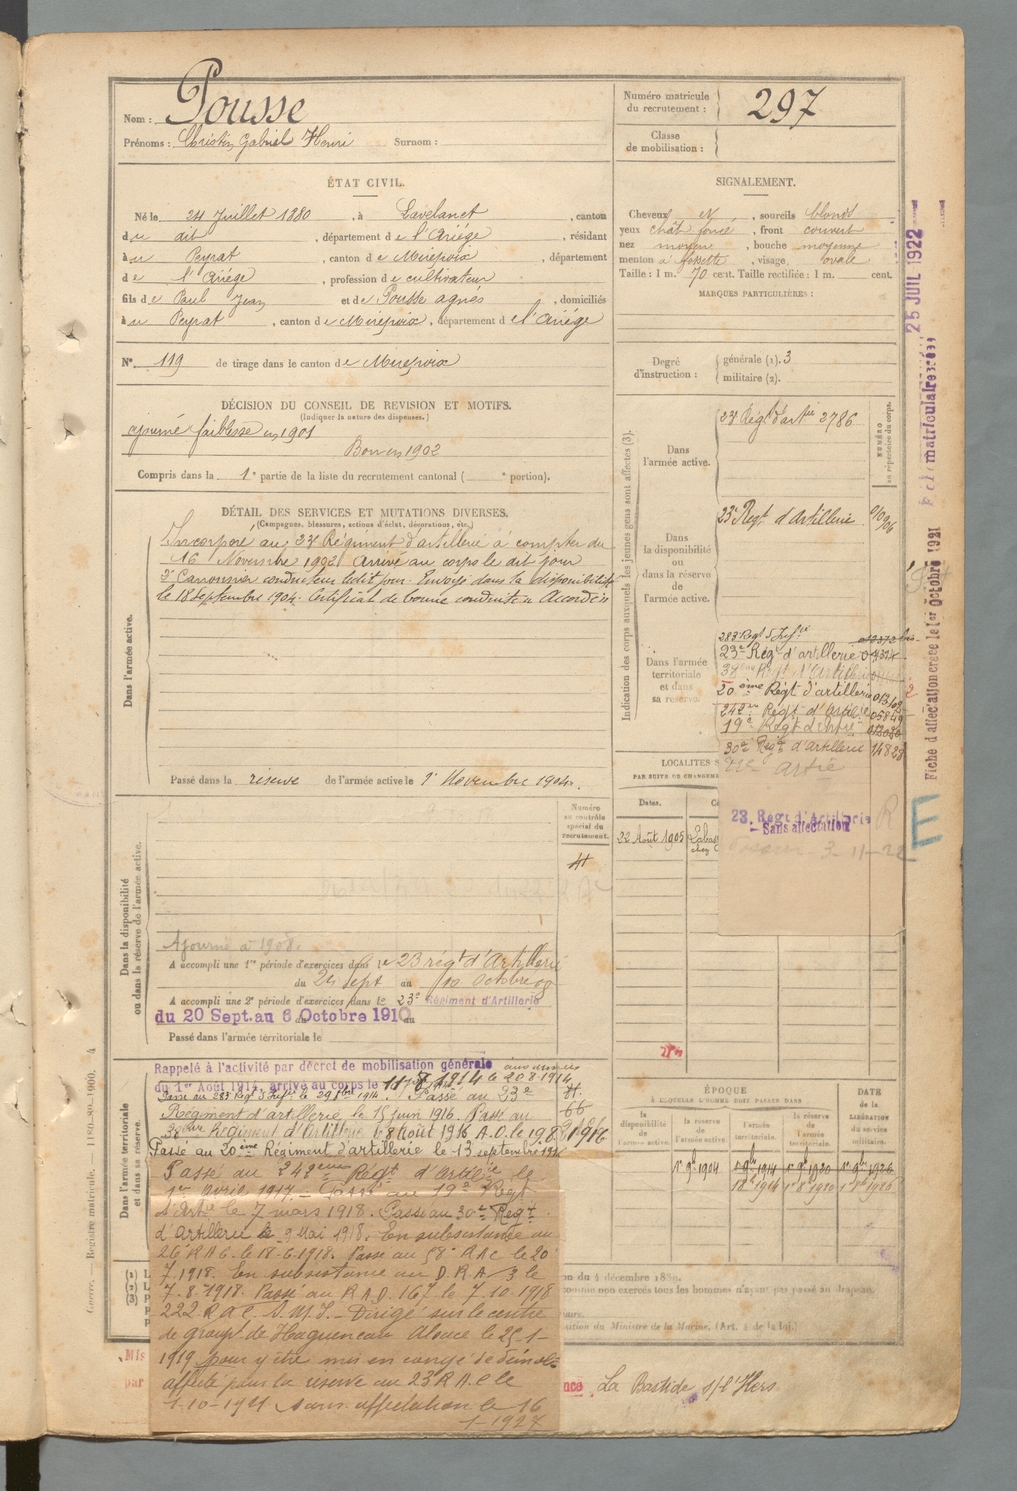 Nom : Pousse
Prénoms : Christin Gabriel Henri Surnom :
Numéro matricule du recrutement : 297
Classe de mobilisation :
ÉTAT CIVIL.
Né le 24 Juillet 1880, à Lavelanet, canton
du dit, département de l'Ariège, résidant
à Peyrat, canton de Mirepoix, département
de l'Ariège, profession de cultivateur
fils de Paul Jean et de Pousse agnès, domiciliés
à Peyrat, canton de Mirepoix, département de l'Ariège
N° 119 de tirage dans le canton de Mirepoix
SIGNALEMENT.
Cheveux et, sourcils blonds
yeux chât foncé, front couvert
nez moyen, bouche moyenne
menton à fossette, visage ovale
Taille : 1 m. 70 cent. Taille rectifiée : 1 m. cent.
MARQUES PARTICULIÈRES :
Degré d'instruction : générale (1). 3
militaire (2).
DÉCISION DU CONSEIL DE REVISION ET MOTIFS.
(Indiquer la nature des dispenses.)
ajourné faiblesse en 1901
Bon en 1902
Compris dans la 1e partie de la liste du recrutement cantonal ( e portion).
DÉTAIL DES SERVICES ET MUTATIONS DIVERSES.
(Campagnes, blessures, actions d'éclat, décorations, etc.)
Dans l'armée active.
Incorporé au 23e Régiment d'artillerie à compter du
16 Novembre 1902 Arrivé au corps le dit jour
2e Canonnier conducteur ledit jour. Envoyé dans la disponibilité
le 18 Septembre 1904. Certificat de bonne conduite Accordé
Passé dans la réserve de l'armée active le 1er Novembre 1904.
Indication des corps auxquels les jeunes gens sont affectés (3).
NUMÉRO au répertoire du corps.
Dans l'armée active.
23e Régt d'artie 2786
Dans la disponibilité ou dans la réserve de l'armée active.
23e Regt d'Artillerie
Dans l'armée territoriale et dans sa réserve.
283 Regt d'Infie
23e Reg d'artillerie
38ème Régt d'Artillerie
20ème Régt d'artillerie
242e Régt d'Artillerie
19e Régt d'Artie
30e Régt d'artillerie 14828
23. Régt d'Artillerie
Sans affectation
R
LOCALITES S
PAR SUITE DE CHANGEME
Dates.
22 Août 1905
Dans la disponibilité ou dans la réserve de l'armée active.
Numéro au contrôle spécial du recrutement.
Ajourné à 1908.
A accompli une 1re période d'exercices dans le 23 régt d'Artillerie
du 24 Sept au 10 Octobre 08
A accompli une 2e période d'exercices dans le 23e Régiment d'Artillerie
du 20 Sept. au 6 Octobre 1910
Passé dans l'armée territoriale le
Dans l'armée territoriale et dans sa réserve.
Rappelé à l'activité par décret de mobilisation générale aux armées
du 1er Août 1914, arrivé au corps le 11 8 1914 le 20 8 1914
Passé au 283 Regt d'Infie le 1914. Passé au 23e
Régiment d'artillerie le 15 juin 1916. Passé au
38ème Régiment d'Artillerie le 8 Août 1916 A.O. le 19 8 1916
Passé au 20ème Régiment d'artillerie le 13 septembre 1916
Passé au 242ème Régt d'Artillerie le
1er Avril 1917. Passé au 19e Régt
d'Artie le 7 mars 1918. Passé au 30e Régt
d'Artillerie le 9 Mai 1918. En subsistance au
26 RAC le 18-6-1918. Passé au 58e RAC le 20
7.1918. En subsistance au D.R.A/3 le
7.8.1918. Passé au R.A.D. 167 le 7.10.1918
222 R.A.C. Dirigé sur le centre
de groupt de Haguenau Alsace le 25-1-
1919 pour y être mis en congé de démob
affecté pour la réserve au 23 R.A.C le
1-10-1921 sans affectation le 16
1-1927
ÉPOQUE
À LAQUELLE L'HOMME DOIT PASSER DANS
la disponibilité de l'armée active.
la réserve de l'armée active.
l'armée territoriale.
la réserve de l'armée territoriale.
DATE de la LIBÉRATION du service militaire.
1er 9bre 1904
ion du 4 décembre 1889.
comme non exercés tous les hommes n'ayant pas passé au drapeau.
sition du Ministre de la Marine. (Art. 4 de la loi.)
Mis
par
La Bastide s/l'Hers
25 JUIL 1922
Fiche d'affectation créée le 1er Octobre 1921
E
Guerre. — Registre matricule. 1180-89-1900. 4